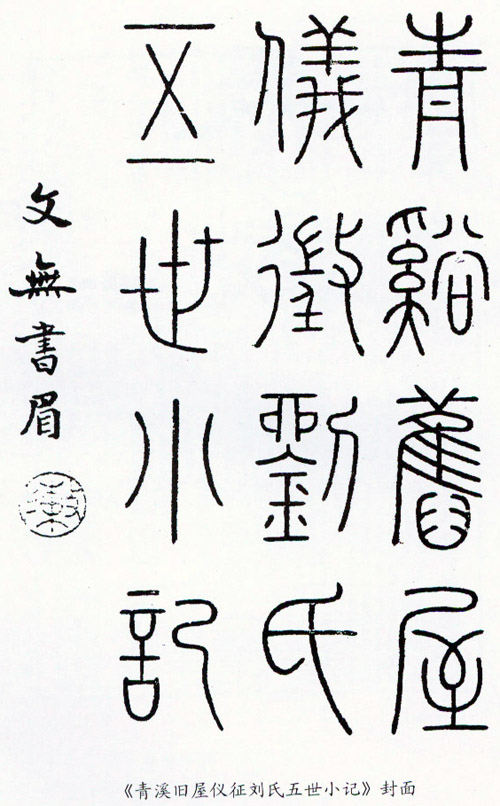 青谿舊屋
儀徵劉氏
五世小記
文無書眉
《青溪旧屋仪征刘氏五世小记》封面